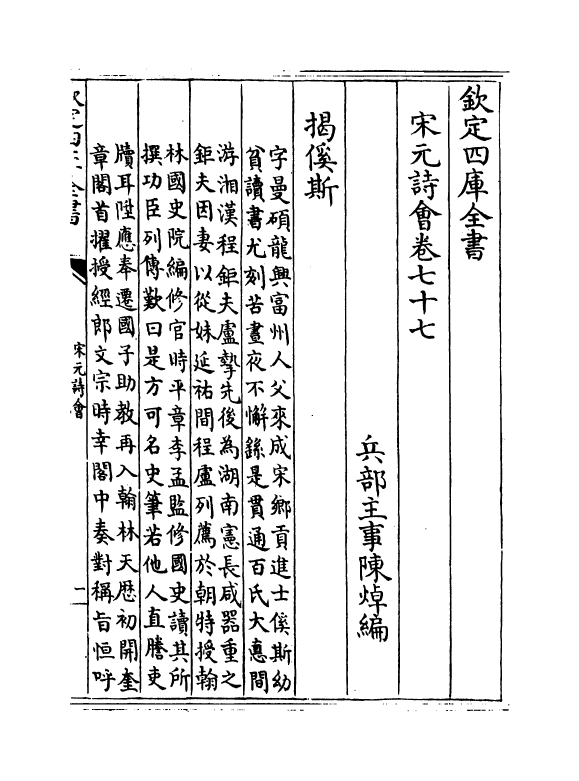 欽定四庫全書
宋元詩會卷七十七
兵部主事陳焯編
揭傒斯
字曼碩龍興富州人父來成宋鄉貢進士傒斯幼
貧讀書尤刻苦晝夜不懈繇是貫通百氏大惪間
游湘漢程鉅夫盧摯先後為湖南憲長咸器重之
鉅夫因妻以從妹延祐間程盧列薦於朝特授翰
林國史院編修官時平章李孟監修國史讀其所
撰功臣列傳歎曰是方可名史筆若他人直謄吏
牘耳陞應奉遷國子助教再入翰林天厯初開奎
章閣首擢授經郎文宗時幸閣中奏對稱旨恒呼
欽定四庫全書
宋元詩會